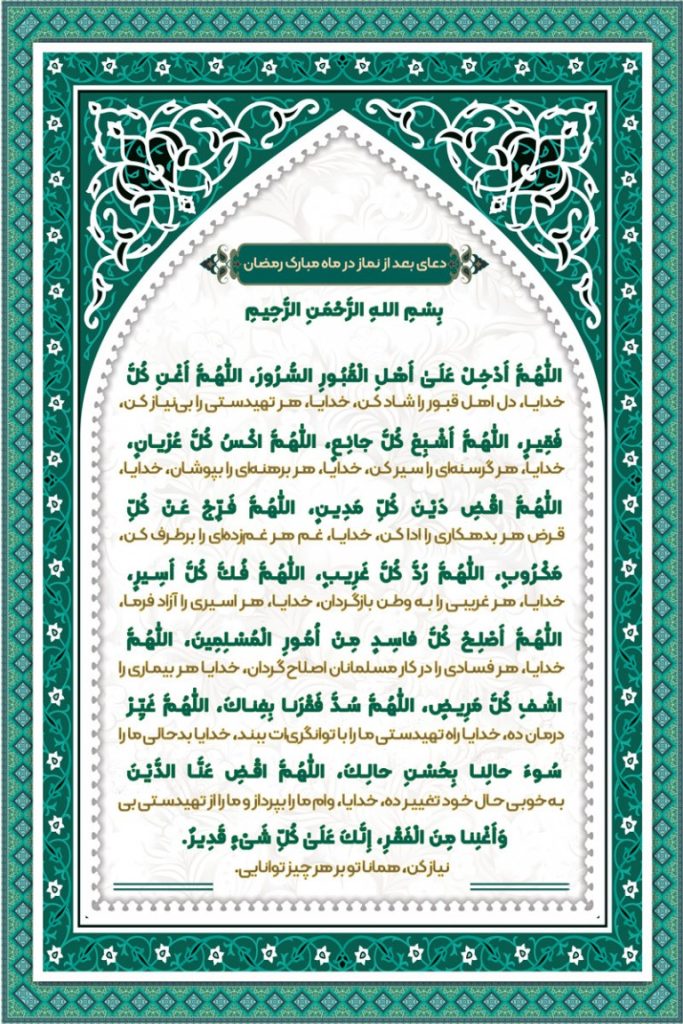 دعای بعد از نماز در ماه مبارک رمضان
بِسْمِ اللهِ الرَّحْمَنِ الرَّحِيمِ
اللّٰهُمَّ أَدْخِلْ عَلَىٰ أَهْلِ الْقُبُورِ السُّرُورَ، اللّٰهُمَّ أَغْنِ كُلَّ
خدایا، دل اهل قبور را شاد کن، خدایا، هر تهیدستی را بی‌نیاز کن،
فَقِيرٍ، اللّٰهُمَّ أَشْبِعْ كُلَّ جائِعٍ، اللّٰهُمَّ اكْسُ كُلَّ عُرْيانٍ،
خدایا، هر گرسنه‌ای را سیر کن، خدایا، هر برهنه‌ای را بپوشان، خدایا،
اللّٰهُمَّ اقْضِ دَيْنَ كُلِّ مَدِينٍ، اللّٰهُمَّ فَرِّجْ عَنْ كُلِّ
قرض هر بدهکاری را ادا کن، خدایا، غم هر غم‌زده‌ای را برطرف کن،
مَكْرُوبٍ، اللّٰهُمَّ رُدَّ كُلَّ غَرِيبٍ، اللّٰهُمَّ فُكَّ كُلَّ أَسِيرٍ،
خدایا، هر غریبی را به وطن بازگردان، خدایا، هر اسیری را آزاد فرما،
اللّٰهُمَّ أَصْلِحْ كُلَّ فاسِدٍ مِنْ أُمُورِ الْمُسْلِمِينَ، اللّٰهُمَّ
خدایا، هر فسادی را در کار مسلمانان اصلاح گردان، خدایا هر بیماری را
اشْفِ كُلَّ مَرِيضٍ، اللّٰهُمَّ سُدَّ فَقْرَنا بِغِناكَ، اللّٰهُمَّ غَيِّرْ
درمان ده، خدایا راه تهیدستی ما را با توانگری‌ات ببند، خدایا بدحالی ما را
سُوءَ حالِنا بِحُسْنِ حالِكَ، اللّٰهُمَّ اقْضِ عَنَّا الدَّيْنَ
به خوبی حال خود تغییر ده، خدایا، وام ما را بپرداز و ما را از تهیدستی بی
وَأَغْنِنا مِنَ الْفَقْرِ، إِنَّكَ عَلَىٰ كُلِّ شَيْءٍ قَدِيرٌ.
نیاز کن، همانا تو بر هر چیز توانایی.